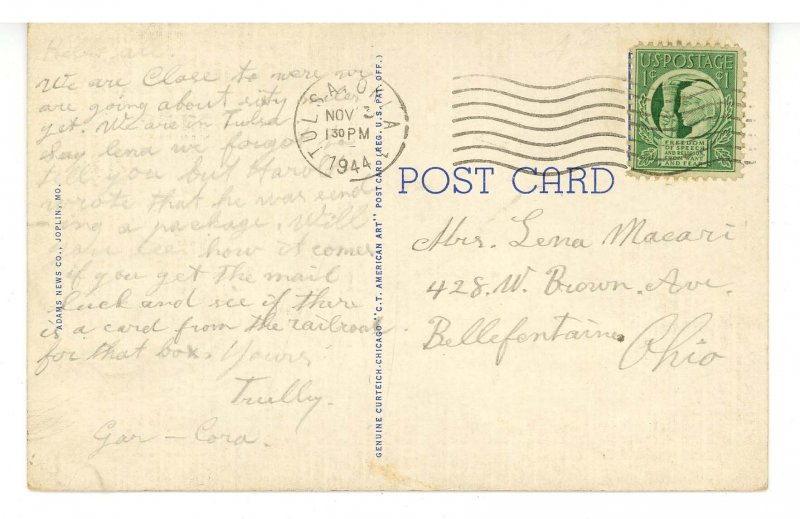 We are Close to were we
are going about sixty miles
yet. We are in Tulsa
Say lena we forgot to
tell you but Harv
wrote that he was send
-ing a package. Will
you see how it comes
if you get the mail
luck and see if there
is a card from the railroad
for that box. Yours
Trully.
Gar - Cora.
ADAMS NEWS CO., JOPLIN, MO.
GENUINE CURTEICH-CHICAGO "C.T. AMERICAN ART" POST CARD (REG. U.S. PAT. OFF.)
TULSA, OKLA
NOV
1 30 PM
1944
U.S. POSTAGE
1¢ ¢1
FREEDOM
OF SPEECH
AND RELIGION
FROM WANT
AND FEAR
POST CARD
Mrs. Lena Macari
428. W. Brown. Ave.
Bellefontaine,
Ohio